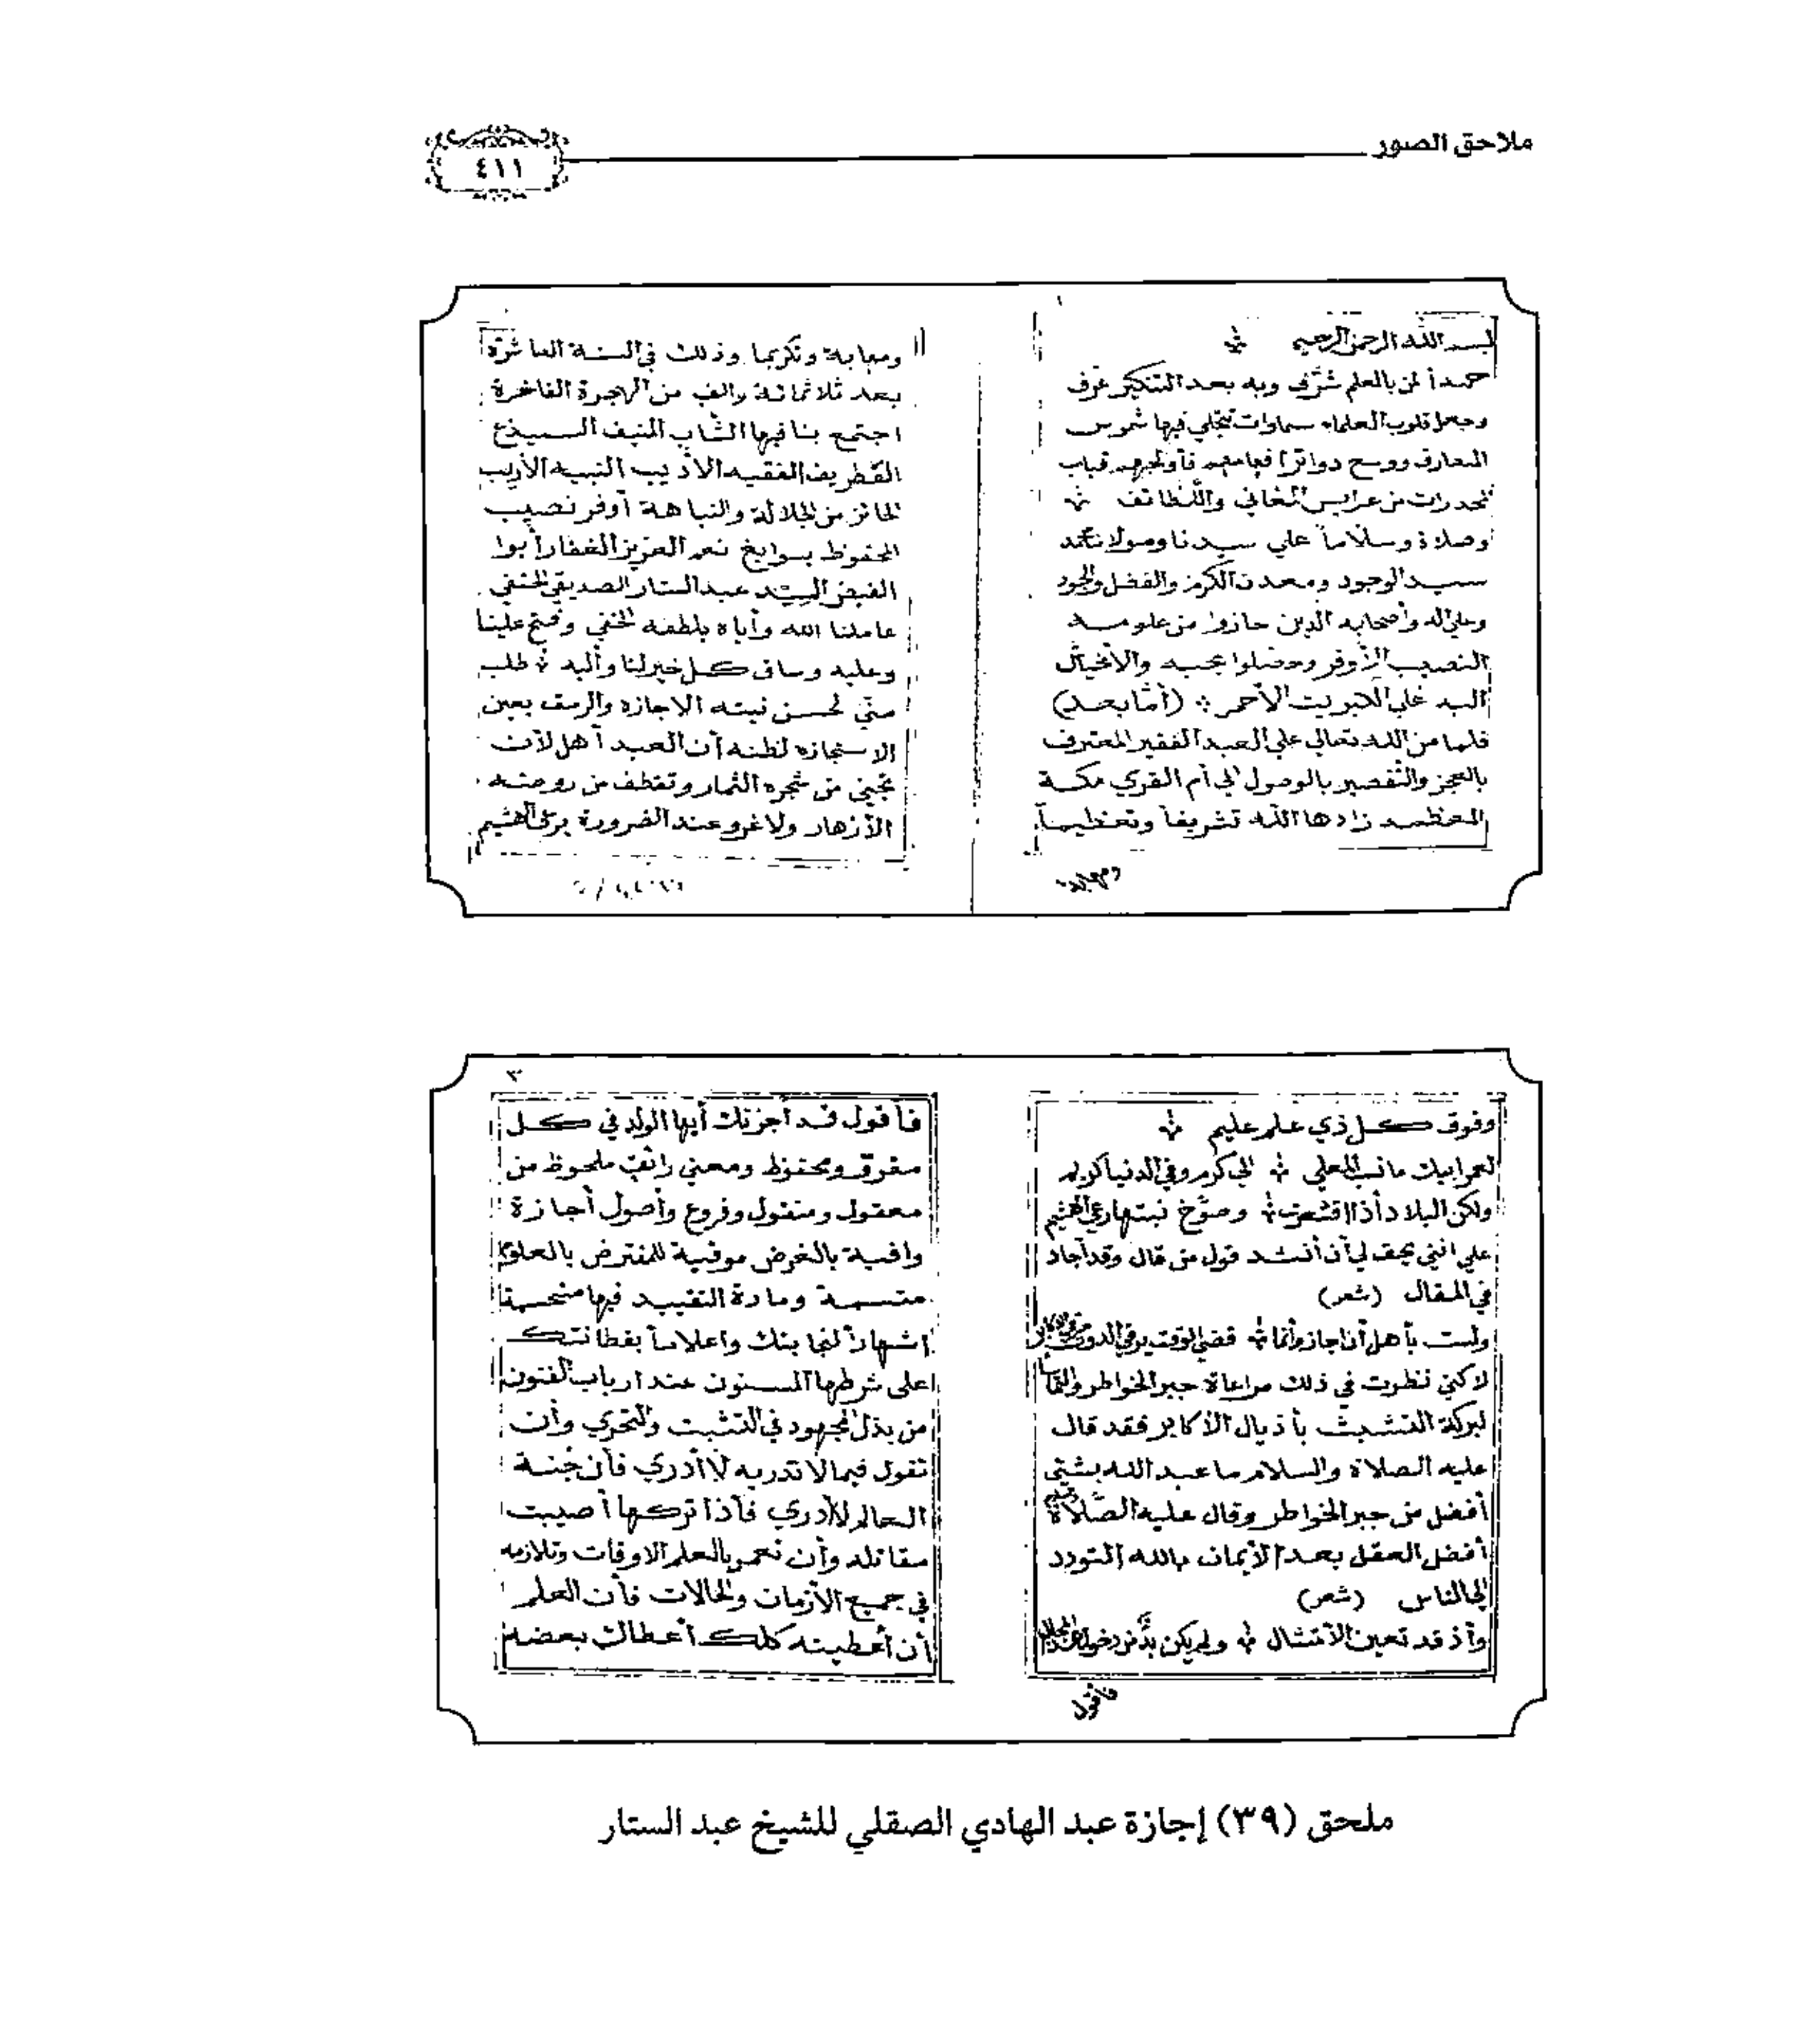 ملاحق الصور
٤١١
بسم الله الرحمن الرحيم
حمدا لمن بالعلم شرَّف وبه بعد التنكير عرف
وجعل قلوب العلماء سماوات تتجلي فيها شموس
المعارف ووسع دوائر
مخدرات من عرايس المعاني واللطائف
وصلاة وسلاماً علي سيدنا ومولانا محمد
سيد الوجود ومعدن الكرم والفضل والجود
وعلي اله وأصحابه الذين حازوا من علومه
النصيب الأوفر وحصلوا
علي الكبريت الأحمر (أما بعد)
فلما من الله تعالي علي العبد الفقير المعترف
بالعجز والتقصير بالوصول الي أم القري مكة
المعظمه زادها الله تشريفاً وتعظيماً
ومهابة وتكريما وذلك في السنة العاشرة
بعد ثلاثمائة والف من الهجرة الفاخرة
اجتمع بنا فيها الشاب المنيف السميذع
الغطريف الفقيه الأديب النبيه الأريب
الحائز من الجلالة والنباهة أوفر نصيب
المحفوظ بسوابغ نعم العزيز الغفار أبوا
الفيض السيد عبد الستار الصديقي الحنفي
عاملنا الله وأياه بلطفه الخفي وفتح علينا
وعليه وساق كل خير لنا وأليه طلب
مني لحسن نيته الاجازه والرمق بعين
الاستجازه لظنه أن العبد أهل لأن
تجني من شجره الثمار وتقطف من روضته
الأزهار ولا غرو عند الضرورة يرعى الهشيم
وفوق كل ذي علم عليم
لعمر ابيك ما نسب المعلي الي كرم وفي الدنيا كريم
ولكن البلاد أذا اقشعرت وصوَّح نبتها رعي الهشيم
علي انني يحق لي أن أنشد قول من قال وقد أجاد
في المقال (شعر)
ولست بأهل أن اجاز وأنما قضي الوقت
لاكني نظرت في ذلك مراعاة جبر الخواطر
لبركة التشبث بأذيال الأكابر فقد قال
عليه الصلاة والسلام ما عبد الله بشئي
أفضل من جبر الخواطر وقال عليه الصَّلاة
أفضل العقل بعد الأيمان بالله التودد
الي الناس (شعر)
وأذ قد تعين الأمتثال ولم يكن بدٌّ من دخول
فأقول
٣
فأقول قد أجزتك أيها الولد في كل
مقروّ ومحفوظ ومعني رائق ملحوظ من
معقول ومنقول وفروع وأصول أجازة
وافية بالغرض موفية للمفترض بالعلو
متسمة ومادة التقييد فيها منحسمة
اشهاراً لنجابتك واعلاماً بفطانتك
على شرطها المسنون عند ارباب الفنون
من بذل المجهود في التثبت والتحري وأن
تقول فيما لا تدريه لا أدري فأن جُنة
العالم لا أدري فأذا تركها أصيبت
مقاتله وأن تعمر بالعلم الاوقات وتلازمه
في جميع الأزمان والحالات فأن العلم
أن أعطيته كلك أعطاك بعضه
ملحق (٣٩) إجازة عبد الهادي الصقلي للشيخ عبد الستار